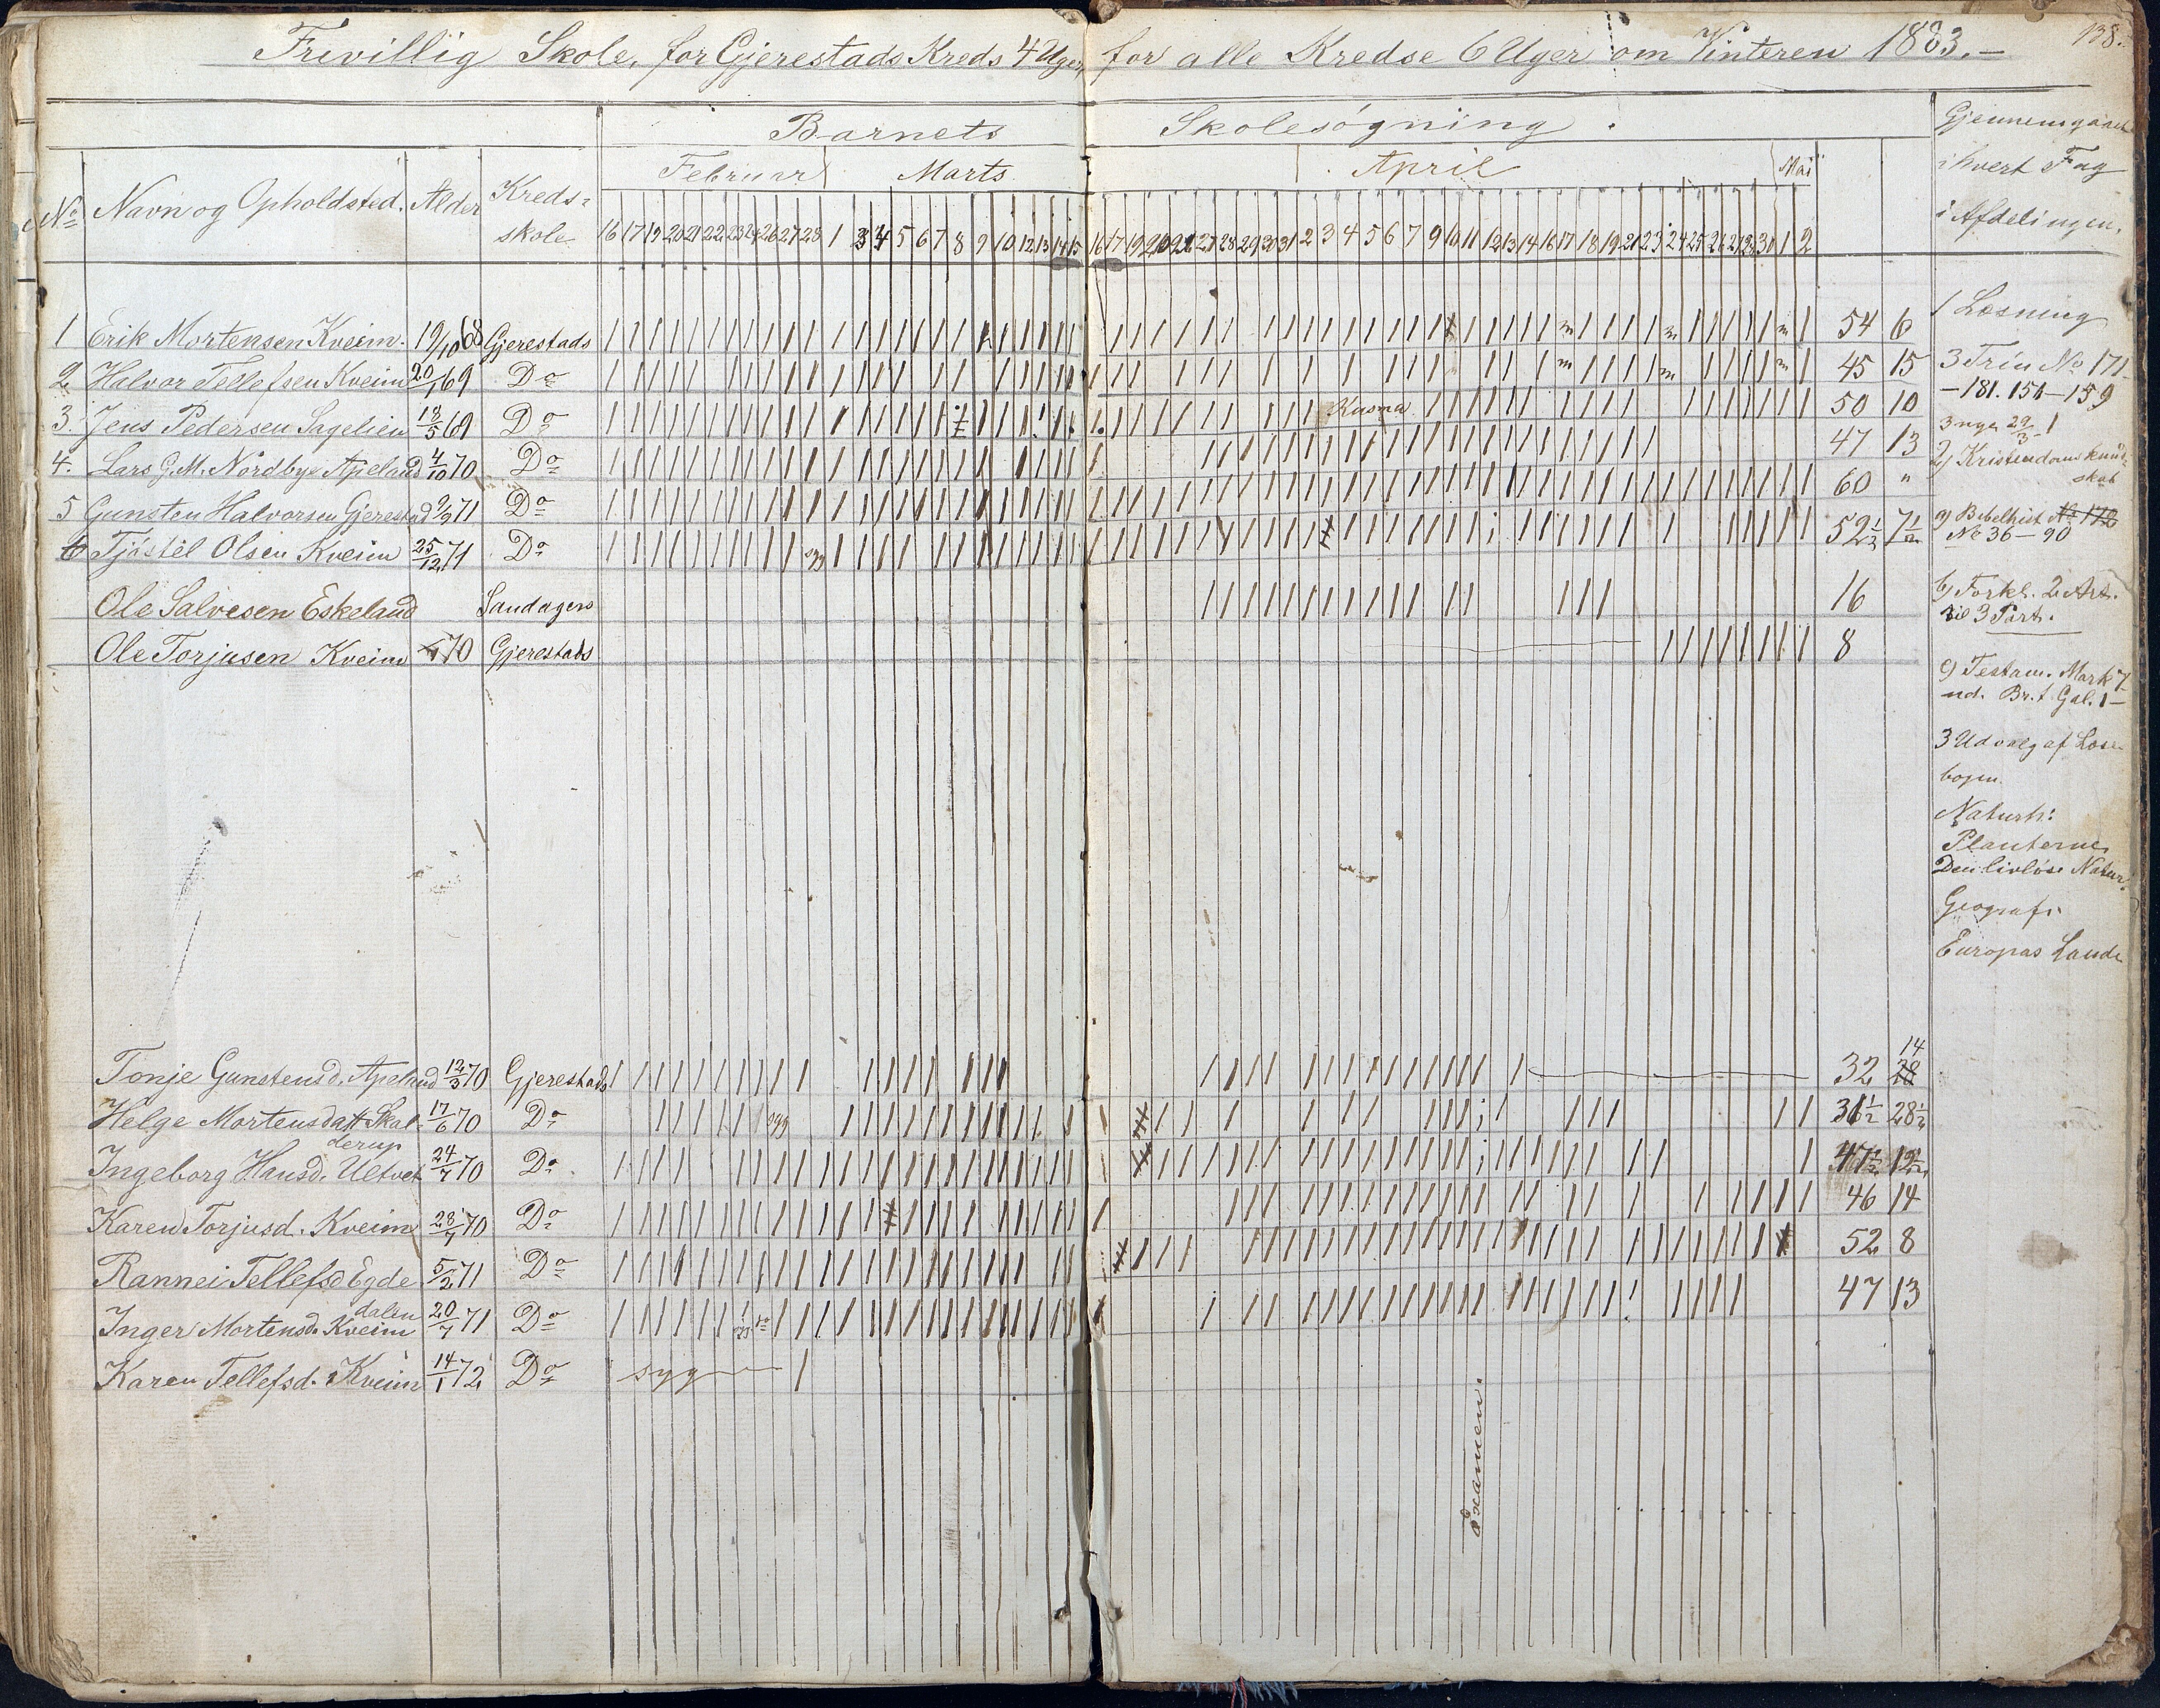 138.
Frivillig Skole, for Gjerestads Kreds 4 Uger, for alle Kredse 6 Uger om Vinteren 1883.-
Barnets Skolesógning.
Februar Marts April Mai
No Navn og Opholdsted. Alder Kreds-
skole
16 17 19 20 21 22 23 24 26 27 28 1 3 4 5 6 7 8 9 10 12 13 14 15 16 17 19 20 21 27 28 29 30 31 2 3 4 5 6 7 9 10 11 12 13 14 16 17 18 19 21 23 24 25 26 27 28 30 1 2
Gjennemgaaet
i hvert Fag
i Afdelingen.
1 Erik Mortensen Kveim. 19/10 68 Gjerestads 54 6
2 Halvor Tellefsen Kveim 20/1 69 Do 45 15
3. Jens Pedersen Sagelien 13/5 69 Do 50 10
4. Lars G. M. Nordbye Apeland 4/10 70 Do 47 13
5 Gunsten Halvorsen Gjerestad 9/9 71 Do 60 "
6 Tjóstél Olsen Kveim 25/12 71 Do syg 52½ 7½
Ole Salvesen Eskeland Sandagers 16
Ole Torjusen Kveim 70 Gjerestads 8
1 Læsning
3 Trin No 171
-181. 154-159
2) Kristendomskund-
skab
a) Bibelhist. No 172
No 36-90
b) Forkl. 2 Art.
til 3 Part.
c) Testam. Mark 7
Br. t. Gal. 1-
3 Udvalg af Læse-
bogen.
Naturh:
Planterne
Den livløse Natur.
Geografi
Europas Lande
Tonje Gunstensd. Apeland 12/3 70 Gjerestads 32 28 14
Helge Mortensdatt Skal- 17/6 70 Do syg 31½ 28½
derup
Ingeborg Hansd. Ultvet 24/7 70 Do 47½ 12½
Karen Torjusd. Kveim 28/7 70 Do 46 14
Rannei Tellefsd Egde 5/2 71 Do 52 8
dalen
Inger Mortensd. Kveim 20/7 71 Do 47 13
Karen Tellefsd. Kveim 14/1 72 Do syg
Examen.